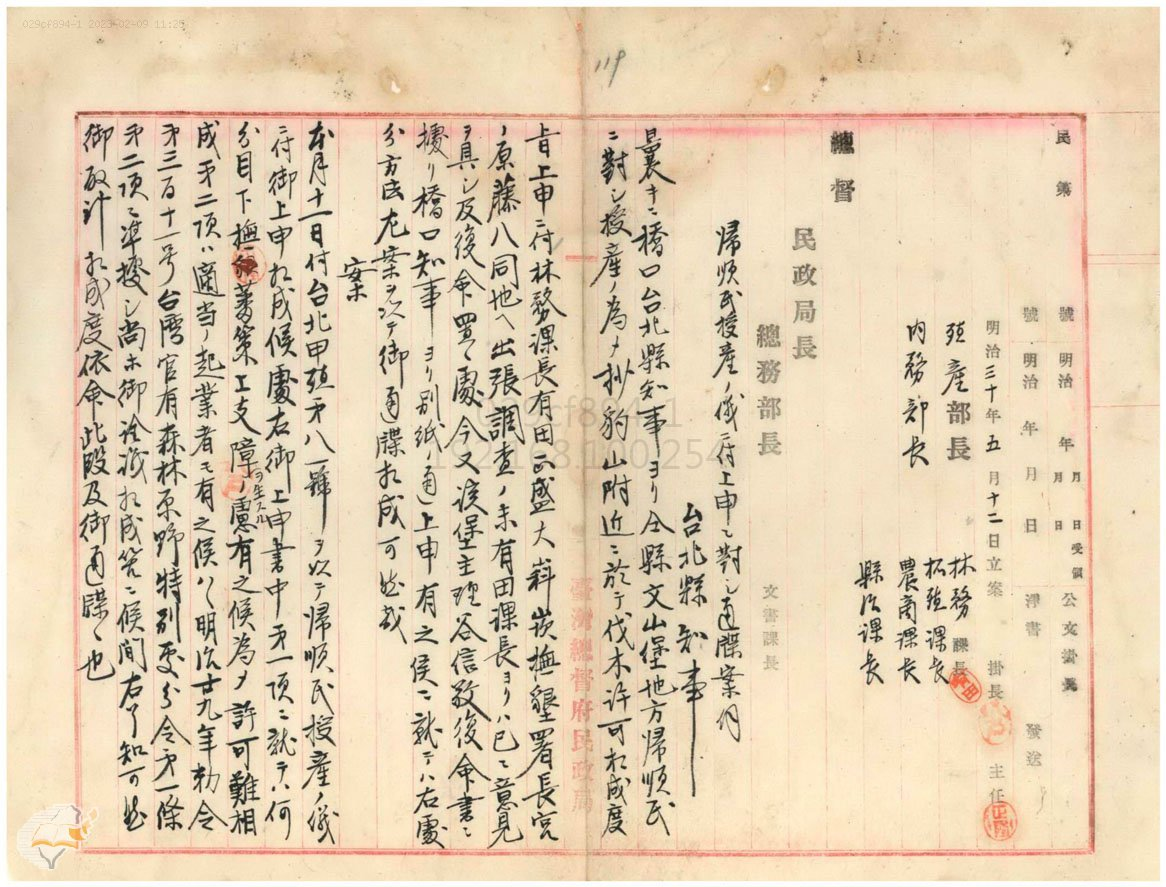 029cf894-1 2023-02-09 11:25
119
民第 號 明治 年 月 日受領 公文掛長
號 明治 年 月 日 淨書 發送
明治三十年五月十二日立案 掛長 主任
殖産部長
内務部長
林務課長
拓殖課長
農商課長
縣治課長
總督
民政局長
總務部長
文書課長
歸順民授産ノ儀ニ付上申ニ對シ通牒案伺
台北縣知事
曩キニ橋口台北縣知事ヨリ仝縣文山堡地方歸順民
ニ對シ授産ノ為メ 豹山附近ニ於テ伐木許可相成度
旨上申ニ付林務課長有田正盛大嵙崁撫墾署長宮
ノ原藤八同地ヘ出張調査ノ末有田課長ヨリハ已ニ意見
ヲ具シ及復命置ク處今又 堡主理谷信敬復命書ニ
據リ橋口知事ヨリ別紙ノ通上申有之候ニ就テハ右處
分方法左案ヲ以テ御通牒相成可然哉
案
本月十一日付台北甲殖第八一號ヲ以テ歸順民授産ノ儀
ニ付御上申相成候處右御上申書中第一項ニ就テハ何
分目下撫蕃策上支障ヲ生スルノ慮有之候為メ許可難相
成第二項ハ適当ノ起業者モ有之候ハヾ明治廿九年勅令
第三百十一号台灣官有森林原野特別處分令第一條
第二項ニ準據シ尚ホ御詮議相成筈ニ候間右了知可然
御取計相成度依命此段及御通牒候也
臺灣總督府民政局
029cf894-1
192.168.100.254